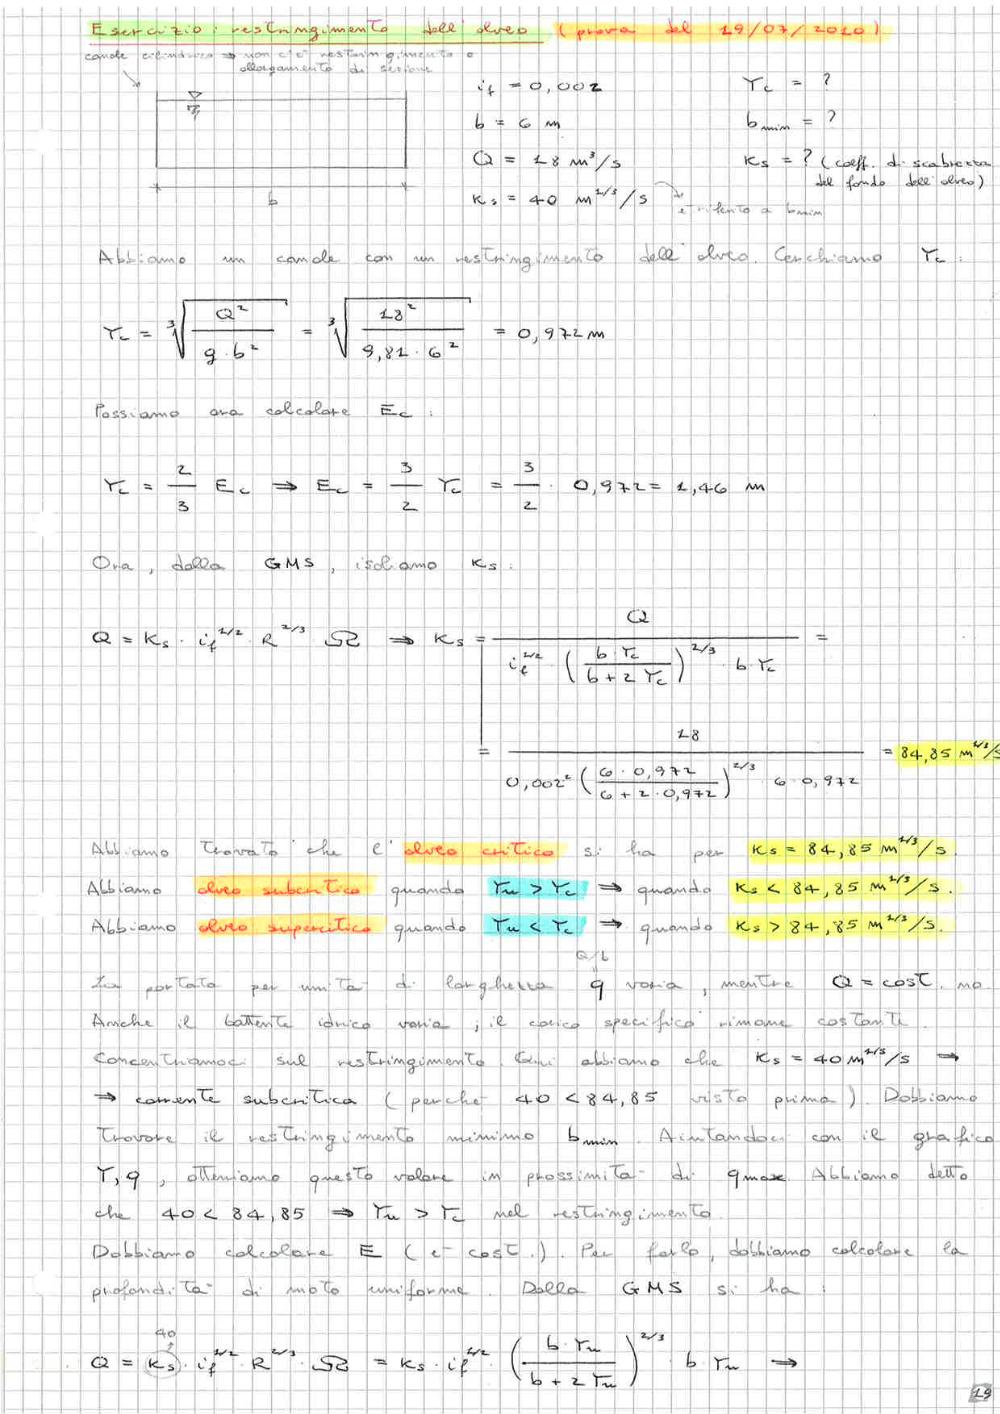 Esercizio: restringimento dell'alveo (prova del 19/07/2010)
canale cilindrico ⇒ non c'è restringimento o
allargamento di sezione
i_f = 0,002
Y_c = ?
b = 6 m
b_min = ?
Q = 18 m³/s
K_s = ? (coeff. di scabrezza
del fondo dell'alveo)
K_s = 40 m^1/3/s
è riferito a b_min
b
Abbiamo un canale con un restringimento dell'alveo. Cerchiamo Y_c:
Y_c = ∛(Q²/(g·b²)) = ∛(18²/(9,81·6²)) = 0,972 m
Possiamo ora calcolare E_c:
Y_c = 2/3 E_c ⇒ E_c = 3/2 Y_c = 3/2 · 0,972 = 1,46 m
Ora, dalla GMS, isoliamo K_s:
Q = K_s · i_f^1/2 · R^2/3 · Ω ⇒ K_s = Q / (i_f^1/2 · (b·Y_c / (b+2Y_c))^2/3 · b·Y_c) =
= 18 / (0,002² (6·0,972 / (6+2·0,972))^2/3 · 6·0,972) = 84,85 m^1/3/s
Abbiamo trovato che l'alveo critico si ha per K_s = 84,85 m^1/3/s.
Abbiamo alveo subcritico quando Y_u > Y_c ⇒ quando K_s < 84,85 m^1/3/s.
Abbiamo alveo supercritico quando Y_u < Y_c ⇒ quando K_s > 84,85 m^1/3/s.
Q/b
La portata per unità di larghezza q varia, mentre Q = cost. no.
Anche il battente idrico varia; il carico specifico rimane costante.
Concentriamoci sul restringimento. Qui abbiamo che K_s = 40 m^1/3/s ⇒
⇒ corrente subcritica (perché 40 < 84,85 visto prima). Dobbiamo
trovare il restringimento minimo b_min. Aiutandoci con il grafico
Y, q, otteniamo questo valore in prossimità di q_max. Abbiamo detto
che 40 < 84,85 ⇒ Y_u > Y_c nel restringimento.
Dobbiamo calcolare E (è cost.). Per farlo, dobbiamo calcolare la
profondità di moto uniforme. Dalla GMS si ha:
40
Q = K_s · i_f^1/2 · R^2/3 · Ω = K_s · i_f^1/2 · (b·Y_u / (b+2Y_u))^2/3 · b·Y_u ⇒
19